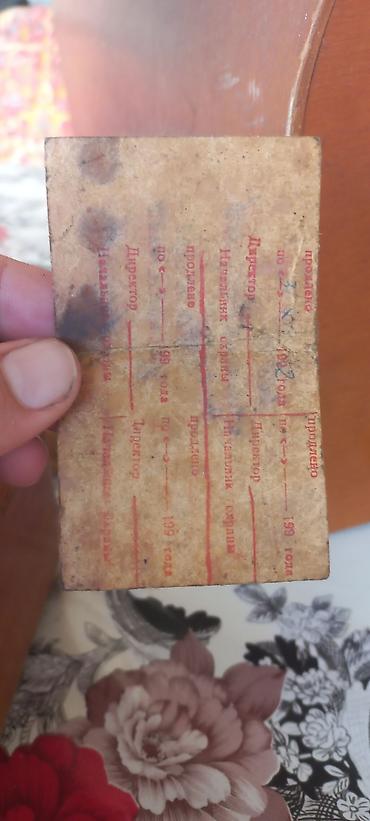 продлено
по «—» 3 XII 1992 года
Директор
Начальник охраны
продлено
по «—» 199 года
Директор
Начальник охраны
продлено
по «—» 199 года
Директор
Начальник охраны
продлено
по «—» 199 года
Директор
Начальник охраны